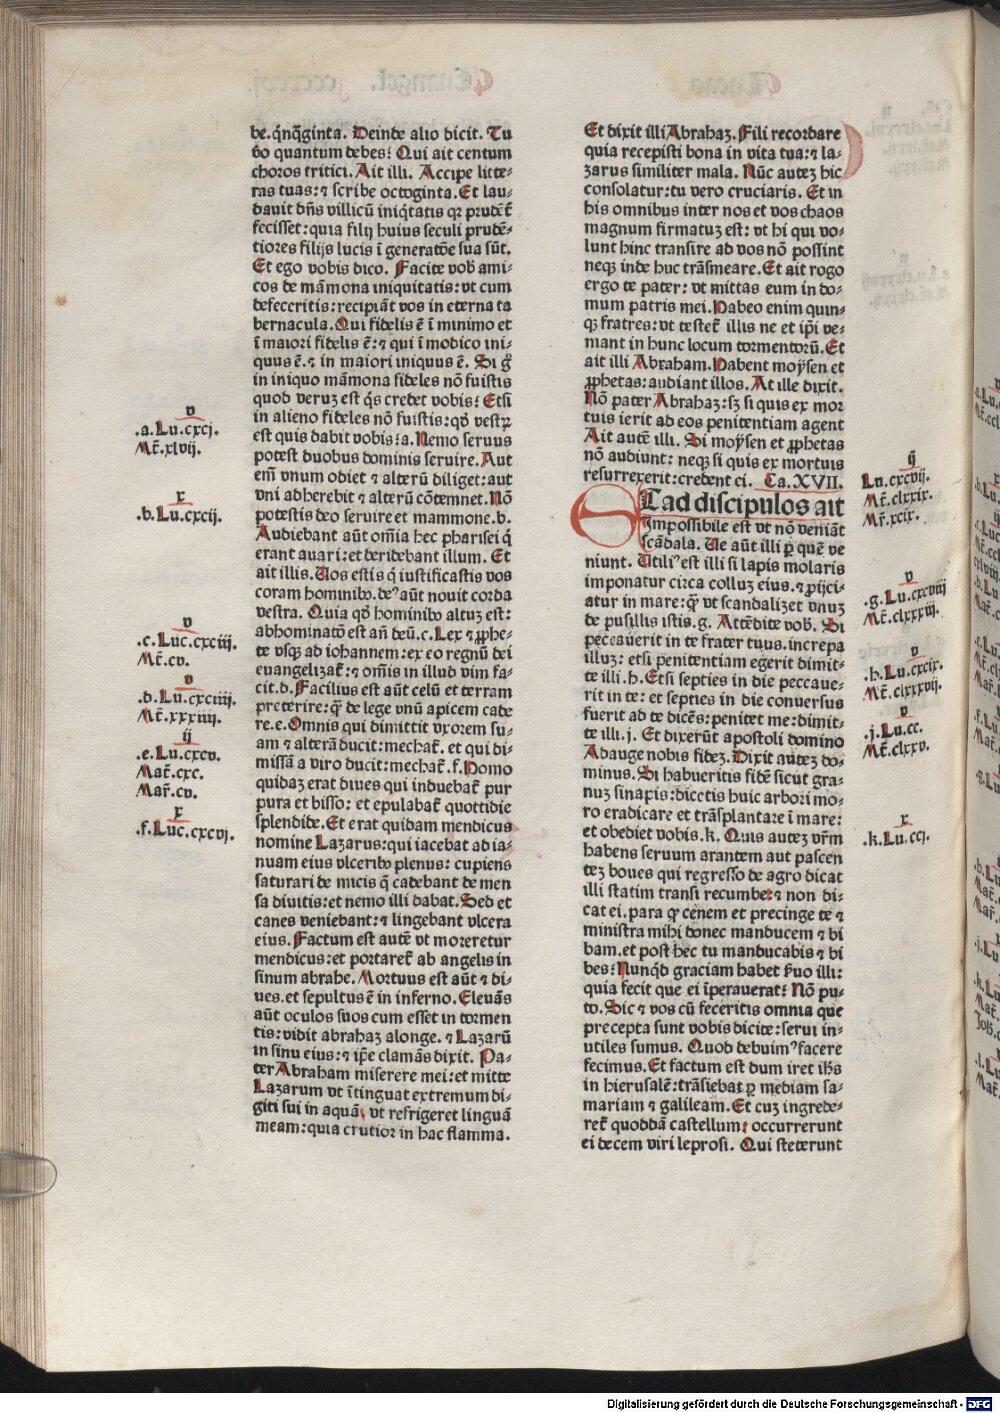 be. q̄nq̄ginta. Deinde alio dicit. Tu
ꝟo quantum debes? Qui ait centum
choros tritici. Ait illi. Accipe litte⸗
ras tuas: ⁊ scribe octoginta. Et lau⸗
dauit dn̄s villicū iniq̄tatis qꝛ prudēt̄
fecisset: quia filij huius seculi prudē⸗
tiores filijs lucis ī generatōe sua sūt.
Et ego vobis dico. Facite vob̄ ami⸗
cos de māmona iniquitatis: vt cum
defeceritis: recipiāt vos in eterna ta
bernacula. Qui fidelis ē ī minimo et
ī maiori fidelis ē: ⁊ qui ī modico ini⸗
quus ē. ⁊ in maiori iniquus ē. Si g̊
in iniquo māmona fideles nō fuistis
quod veruꝫ est q̄s credet vobis? Etsi
in alieno fideles nō fuistis: qd̄ vestꝝ
est quis dabit vobis? a. Nemo seruus
potest duobus dominis seruire. Aut
em̄ vnum odiet ⁊ alterū diliget: aut
vni adherebit ⁊ alterū cōtemnet. Nō
potestis deo seruire et mammone. b.
Audiebant aūt om̄ia hec pharisei q̇
erant auari: et deridebant illum. Et
ait illis. Uos estis q̇ iustificastis vos
coram hominibꝰ. deꝰ aūt nouit corda
vestra. Quia qd̄ hominibꝰ altuꝫ est:
abhominatō est an̄ deū. c. Lex ⁊ ꝓphe⸗
te vsqꝫ ad iohannem: ex eo regnū dei
euangelizat̄: ⁊ om̄is in illud vim fa⸗
cit. d. Facilius est aūt celū et terram
preterire: qꝫ̄ de lege vnū apicem cade
re. e. Omnis qui dimittit vxorem su⸗
am ⁊ alterā ducit: mechat̄. et qui di⸗
missā a viro ducit: mechat̄. f. Homo
quidaꝫ erat diues qui induebat̄ pur
pura et bisso: et epulabat̄ quottidie
splendide. Et erat quidam mendicus
nomine Lazarus: qui iacebat ad ia⸗
nuam eius vlceribꝰ plenus: cupiens
saturari de micis q̄ cadebant de men
sa diuitis: et nemo illi dabat. Sed et
canes veniebant: ⁊ lingebant vlcera
eius. Factum est autē vt moreretur
mendicus: et portaret̄ ab angelis in
sinum abrahe. Mortuus est aūt ⁊ di⸗
ues. et sepultus ē in inferno. Eleuās
aūt oculos suos cum esset in tormen
tis: vidit abrahaꝫ alonge. ⁊ Lazarū
in sinu eius: ⁊ ip̄e clamās dixit. Pa⸗
ter Abraham miserere mei: et mitte
Lazarum vt ītinguat extremum di⸗
giti sui in aquā, vt refrigeret linguā
meam: quia crucior in hac flamma.
v
.a. Lu. cxcj.
Mt̄. xlvij.
x
.b. Lu. cxcij.
v
.c. Luc. cxciij.
Mt̄. cv.
v
.d. Lu. cxciiij.
Mt̄. xxxiiij.
ij
.e. Lu. cxcv.
Mat̄. cxc.
Mar̄. cv.
x
.f. Luc. cxcvj.
Et dixit illi Abrahaꝫ. Fili recordare
quia recepisti bona in vita tua: ⁊ la⸗
zarus similiter mala. Nūc auteꝫ hic
consolatur: tu vero cruciaris. Et in
his omnibus inter nos et vos chaos
magnum firmatuꝫ est: vt hi qui vo⸗
lunt hinc transire ad vos nō possint
neqꝫ inde huc trāsmeare. Et ait rogo
ergo te pater: vt mittas eum in do⸗
mum patris mei. Habeo enim quin⸗
qꝫ fratres: vt testet̄ illis ne et ip̄i ve⸗
niant in hunc locum tormentorū. Et
ait illi Abraham. Habent moysen et
ꝓphetas: audiant illos. At ille dixit.
Nō pater Abrahaꝫ: sꝫ si quis ex mor
tuis ierit ad eos penitentiam agent
Ait autē illi. Si moysen et ꝓphetas
nō audiunt: neqꝫ si quis ex mortuis
resurrexerit: credent ei. Ca. XVII.
ET ad discipulos ait
Impossibile est vt nō veniāt
scādala. Ue aūt illi ꝑ quē ve
niunt. Utiliꝰ est illi si lapis molaris
imponatur circa colluꝫ eius. ⁊ prijci⸗
atur in mare: qꝫ̄ vt scandalizet vnuꝫ
de pusillis istis. g. Attēdite vob̄. Si
peccauerit in te frater tuus. increpa
illuꝫ: etsi penitentiam egerit dimit⸗
te illi. h. Etsi septies in die peccaue⸗
rit in te: et septies in die conuersus
fuerit ad te dicēs: penitet me: dimit⸗
te illi. j. Et dixerūt apostoli domino
Adauge nobis fideꝫ. Dixit auteꝫ do⸗
minus. Si habueritis fidē sicut gra⸗
nuꝫ sinapis: dicetis huic arbori mo⸗
ro eradicare et trāsplantare ī mare:
et obediet vobis. k. Quis auteꝫ vr̄m
habens seruum arantem aut pascen
teꝫ boues qui regresso de agro dicat
illi statim transi recumbe: ⁊ non di⸗
cat ei. para qꝫ cenem et precinge te ⁊
ministra mihi donec manducem ⁊ bi
bam. et post hec tu manducabis ⁊ bi
bes? Nunqd̄ graciam habet s̄uo illi:
quia fecit que ei īperauerat? Nō pu⸗
to. Sic ⁊ vos cū feceritis omnia que
precepta sunt vobis dicite: serui in⸗
utiles sumus. Quod debuimꝰ facere
fecimus. Et factum est dum iret ih̄s
in hierusalē: trāsiebat ꝑ mediam sa⸗
mariam ⁊ galileam. Et cuꝫ ingrede⸗
ret̄ quoddā castellum: occurrerunt
ei decem viri leprosi. Qui steterunt
ij
Lu. cxcvij.
Mt̄. clxxix.
Mr̄. xcix.
v
.g. Lu. cxcviij
Mt̄. clxxxiij.
v
.h. Lu. cxcix.
Mt̄. clxxxvij.
v
.j. Lu. cc.
Mt̄. clxxv.
x
.k. Lu. ccj.
Digitalisierung gefördert durch die Deutsche Forschungsgemeinschaft - DFG